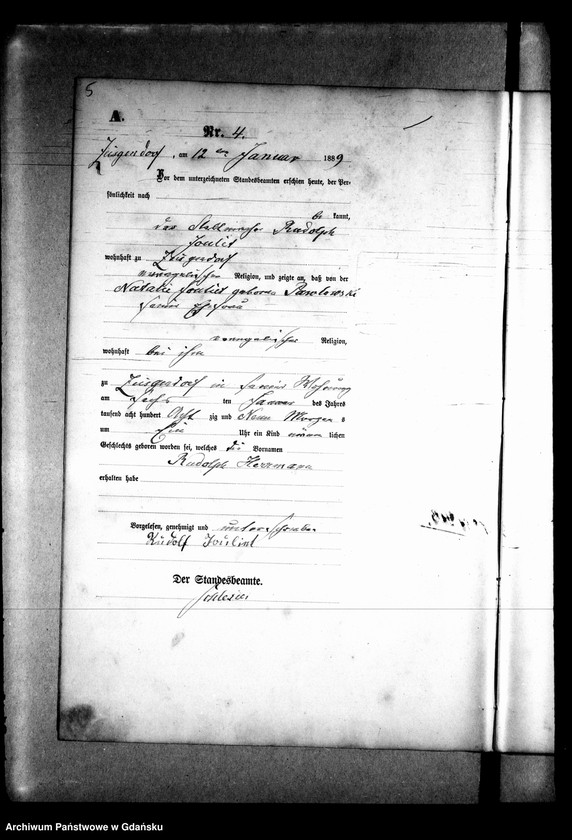 5
A.
Nr. 4.
Zusgendorf, am 12 ten Januar 1889
Vor dem unterzeichneten Standesbeamten erschien heute, der Per-
sönlichkeit nach
be kannt,
der Stellmacher Rudolph
wohnhaft zu Zusgendorf
evangelischer Religion, und zeigte an, daß von der
Natalie geborene Pawlowski
seiner Ehefrau
evangelischer Religion,
wohnhaft bei ihm
zu Zusgendorf in seiner Wohnung
am Sechs ten Januar des Jahres
tausend acht hundert Acht zig und Neun Morgen s
um Ein Uhr ein Kind männ lichen
Geschlechts geboren worden sei, welches die Vornamen
Rudolph Herrmann
erhalten habe
Vorgelesen, genehmigt und unterschrieben
Rudolf
Der Standesbeamte.
Archiwum Państwowe w Gdańsku